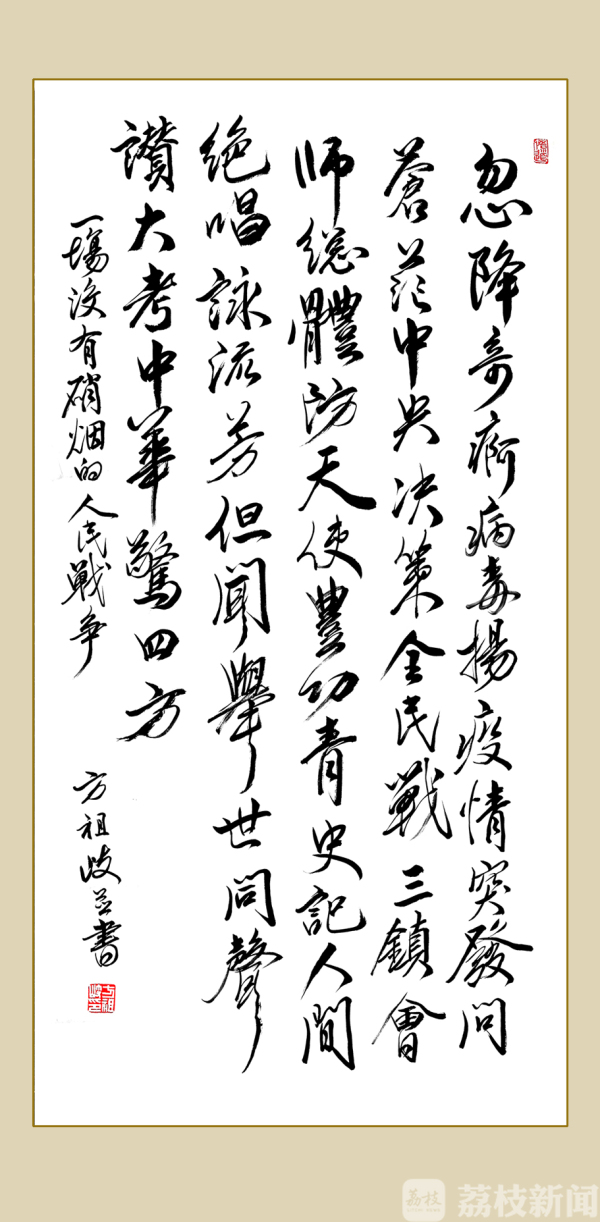 忽降奇痾病毒揚疫情突發問
蒼茫中央决策全民戰三鎮會
師總體防天使豐功青史記人間
絶唱詠流芳但聞舉世同聲
讃大考中華驚四方
一場没有硝烟的人民戰争
方祖岐並書
荔枝
荔枝新闻